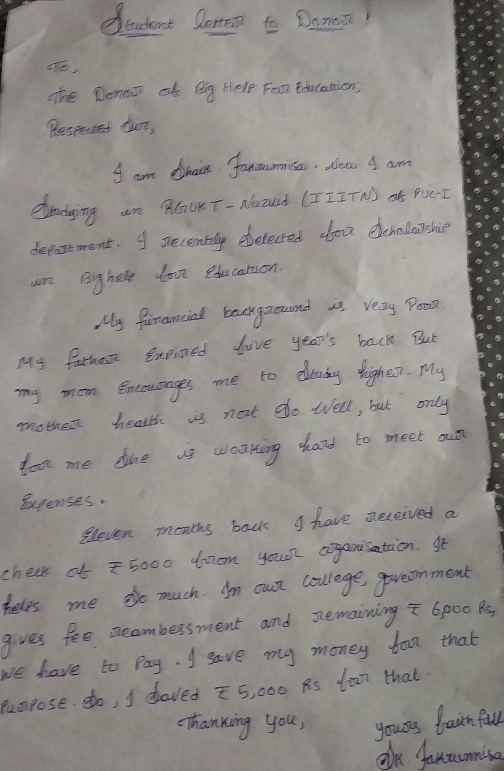 Student letter to Donor!
To,
The Donor of Big Help For Education,
Respected Sir,
I am Shaik Fakrunnisa. Now I am
Studying in RGUKT-Nuzvid (IIITN) of PUC-I
department. I recently Selected for Scholarship
in Big help for Education.
My financial background is very Poor.
My father Expired five year's back. But
my mom Encourages me to Study higher. My
mother health is not So well, but only
for me She is working hard to meet our
Expenses.
Eleven months back I have received a
check of ₹5000 from your organisation. It
helps me So much. In our college, government
gives fee reambessment and remaining ₹ 6,000 Rs,
we have to Pay. I save my money for that
Purpose. So, I Saved ₹ 5,000 Rs for that.
Thanking You,
yours faithfull
Sk. Fakrunnisa